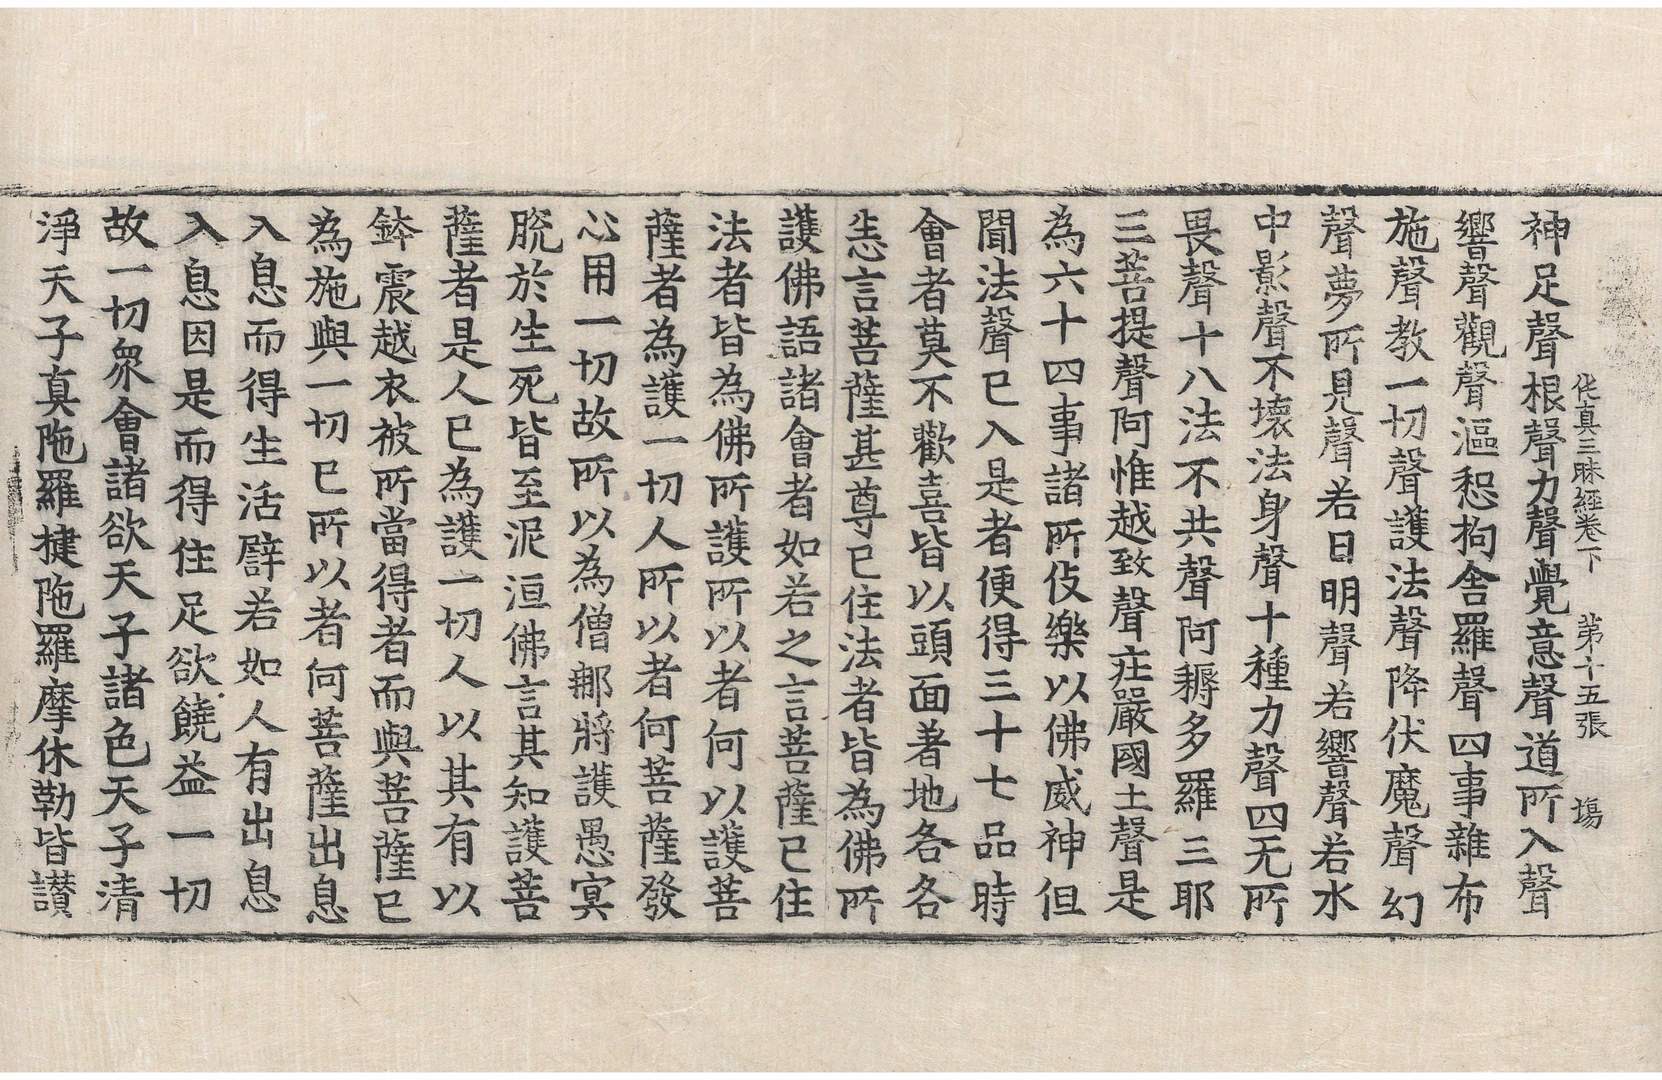 伅真三昧經卷下　第十五張　塲
神足聲根聲力聲覺意聲道所入聲
響聲觀聲漚惒拘舍羅聲四事雜布
施聲教一切聲護法聲降伏魔聲幻
聲夢所見聲若日明聲若響聲若水
中影聲不壞法身聲十種力聲四无所
畏聲十八法不共聲阿耨多羅三耶
三菩提聲阿惟越致聲莊嚴國土聲是
為六十四事諸所伎樂以佛威神但
聞法聲已入是者便得三十七品時
會者莫不歡喜皆以頭面著地各各
恙言菩薩甚尊已住法者皆為佛所
護佛語諸會者如若之言菩薩已住
法者皆為佛所護所以者何以護菩
薩者為護一切人所以者何菩薩發
心用一切故所以為僧那將護愚冥
脫於生死皆至泥洹佛言其知護菩
薩者是人已為護一切人以其有以
鉢震越衣被所當得者而與菩薩已
為施與一切已所以者何菩薩出息
入息而得生活譬若如人有出息
入息因是而得住足欲饒益一切
故一切眾會諸欲天子諸色天子清
淨天子真陁羅揵陁羅摩休勒皆讃